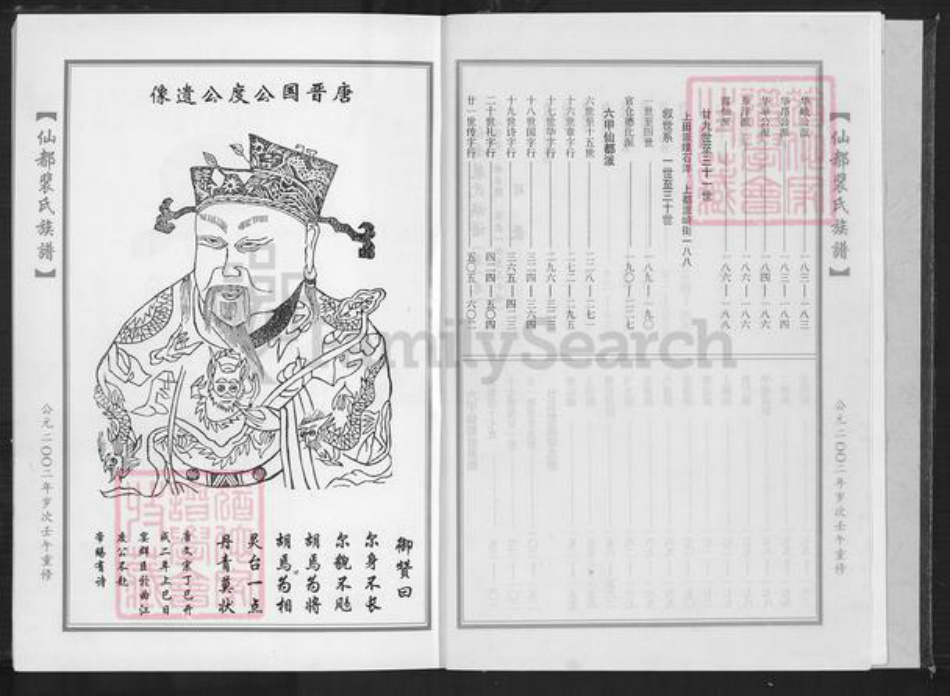 【仙都裴氏族譜】
公元二〇〇二年岁次壬午重修
华嵊公派 一八三—一八三
华昂公派 一八三—一八四
一八四—一八六
一八六—一八六
一八六—一八八
廿九世至三十一世
一八八
叙世系 一世至三十世
一世至四世 一八九—一九〇
官仓德化派 一九〇—二二七
六甲仙都派
六世至十五世 二二八—二七一
十六世章字行 二七二—二九五
十七世华字行 二九六—三二三
十八世国字行 三二四—三六四
十九世诗字行 三六五—四二三
二十世礼字行 四二四—五〇四
廿一世传字行 五〇五—六〇二
唐晋国公度公遺像
御赞曰
尔身不长
尔貌不飏
胡為为将
胡為为相
灵台一点
丹青莫状
唐文宗丁巳开
成二年上巳日
宴群臣於曲江
度公不赴
帝赐有诗
【仙都裴氏族譜】
公元二〇〇二年岁次壬午重修
FamilySearch